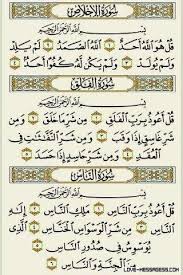 سُورَةُ الْإِخْلَاصِ
بِسْمِ اللَّهِ الرَّحْمَٰنِ الرَّحِيمِ
قُلْ هُوَ اللَّهُ أَحَدٌ ١ اللَّهُ الصَّمَدُ ٢ لَمْ يَلِدْ
وَلَمْ يُولَدْ ٣ وَلَمْ يَكُن لَّهُ كُفُوًا أَحَدٌ ٤
سُورَةُ الْفَلَقِ
بِسْمِ اللَّهِ الرَّحْمَٰنِ الرَّحِيمِ
قُلْ أَعُوذُ بِرَبِّ الْفَلَقِ ١ مِن شَرِّ مَا خَلَقَ ٢ وَمِن
شَرِّ غَاسِقٍ إِذَا وَقَبَ ٣ وَمِن شَرِّ النَّفَّاثَاتِ فِي
الْعُقَدِ ٤ وَمِن شَرِّ حَاسِدٍ إِذَا حَسَدَ ٥
سُورَةُ النَّاسِ
بِسْمِ اللَّهِ الرَّحْمَٰنِ الرَّحِيمِ
قُلْ أَعُوذُ بِرَبِّ النَّاسِ ١ مَلِكِ النَّاسِ ٢ إِلَٰهِ
النَّاسِ ٣ مِن شَرِّ الْوَسْوَاسِ الْخَنَّاسِ ٤ الَّذِي
يُوَسْوِسُ فِي صُدُورِ النَّاسِ ٥
مِنَ الْجِنَّةِ وَالنَّاسِ ٦
LOVE-MESSAGESS.COM